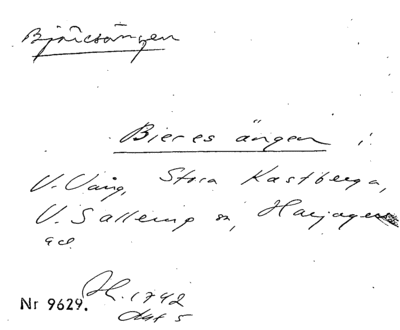 Bjärsängen
Bieres ängen i
V. Vång, Stora Kastberga,
V. Sallerup sn, Harjagers
Nr 9629. 1742